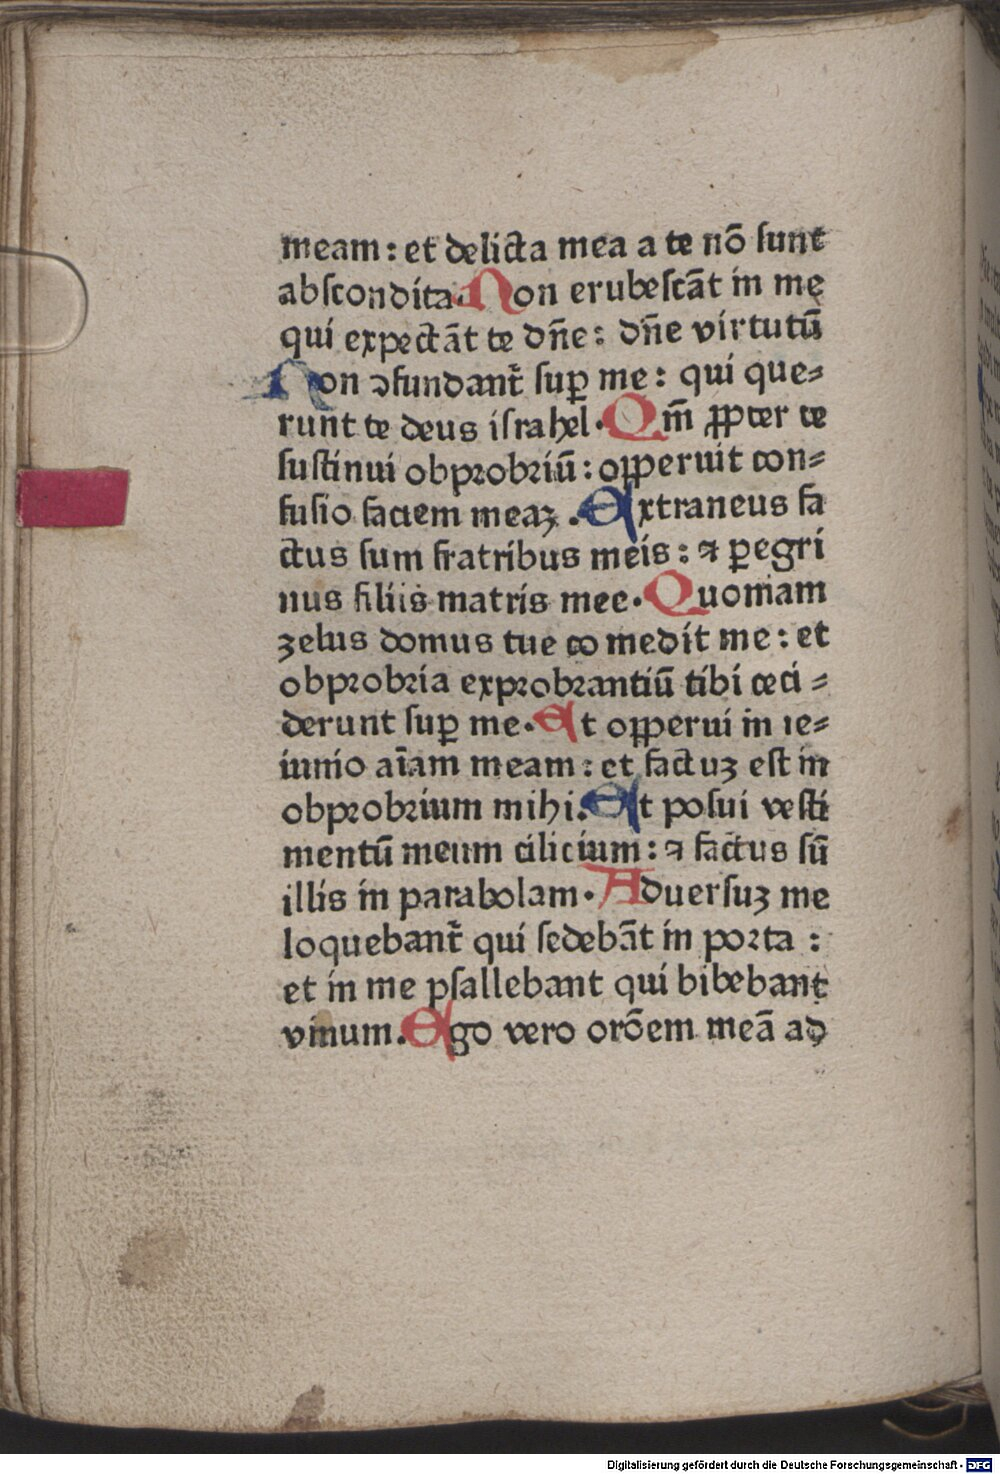 meam: et delicta mea a te nō sunt
abscondita. Non erubescāt in me
qui expectāt te dn̄e: dn̄e virtutū
Non ꝯfundant᷑ suꝑ me: qui que⸗
runt te deus israhel. Qm̄ ꝓpter te
sustinui obprobriū: oꝑperuit con⸗
fusio faciem meaꝫ. Extraneus fa
ctus sum fratribus meis: ⁊ ꝑegri
nus filiis matris mee. Quoniam
zelus domus tue comedit me: et
obprobria exprobrantiū tibi ceci⸗
derunt suꝑ me. Et oꝑperui in ie⸗
iunio aīam meam: et factuꝫ est in
obprobrium mihi. Et posui vesti
mentū meum cilicium: ⁊ factus sū
illis in parabolam. Aduersuꝫ me
loquebant᷑ qui sedebāt in porta:
et in me psallebant qui bibebant
vinum. Ego vero orōem meā ad
Digitalisierung gefördert durch die Deutsche Forschungsgemeinschaft - DFG